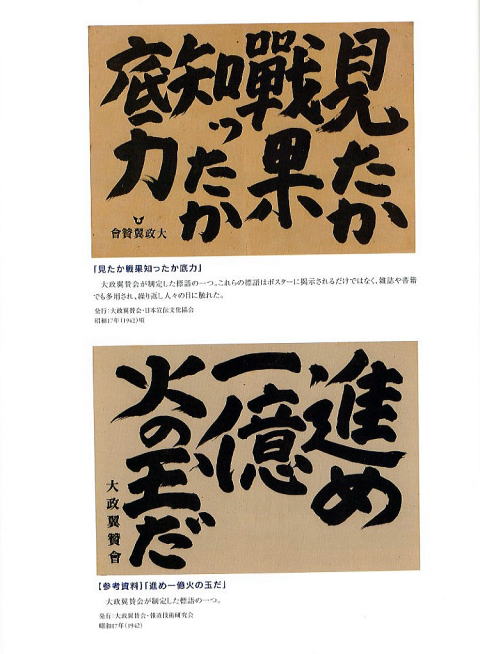 見たか
戰果
知ったか
底力
大政翼贊會
「見たか戦果知ったか底力」
大政翼賛会が制定した標語の一つ。これらの標語はポスターに掲示されるだけではなく、雑誌や書籍
でも多用され、繰り返し人々の目に触れた。
発行：大政翼賛会・日本宣伝文化協会
昭和17年(1942)頃
進め
一億
火の玉だ
大政翼贊會
【参考資料】「進め一億火の玉だ」
大政翼賛会が制定した標語の一つ。
発行：大政翼賛会・報道技術研究会
昭和17年(1942)